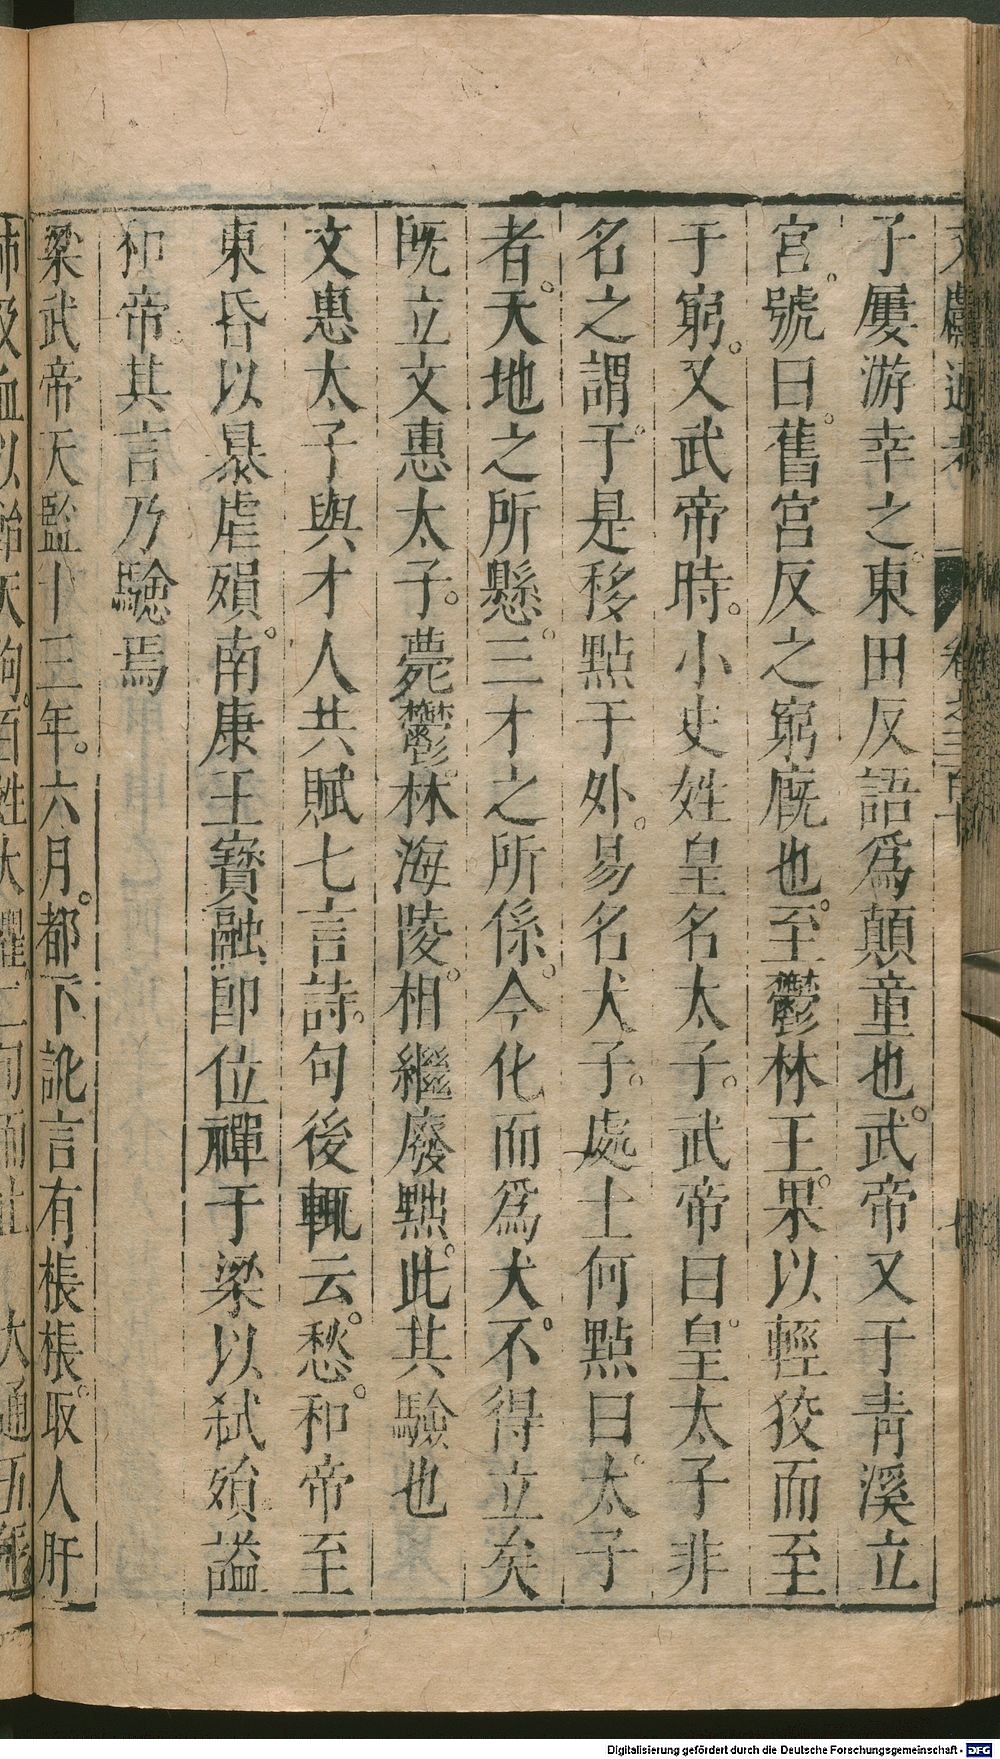 文獻通考 卷之三百十
子屢游幸之東田反語爲顛童也武帝又于青溪立
宮號曰舊宮反之窮廐也至鬱林王果以輕狡而至
于窮又武帝時小史姓皇名太子武帝曰皇太子非
名之謂于是移點于外易名犬子處士何點曰太子
者天地之所懸三才之所係今化而爲犬不得立矣
既立文惠太子薨鬱林海陵相繼廢黜此其驗也
文惠太子與才人共賦七言詩句後輒云愁和帝至
東昏以暴虐殞南康王寶融卽位禪于梁以弑殂謚
和帝其言乃驗焉
梁武帝天監十三年六月都下訛言有棖棖取人肝
肺及血以飴天狗百姓大懼二旬而止 大通五年
Digitalisierung gefördert durch die Deutsche Forschungsgemeinschaft - DFG